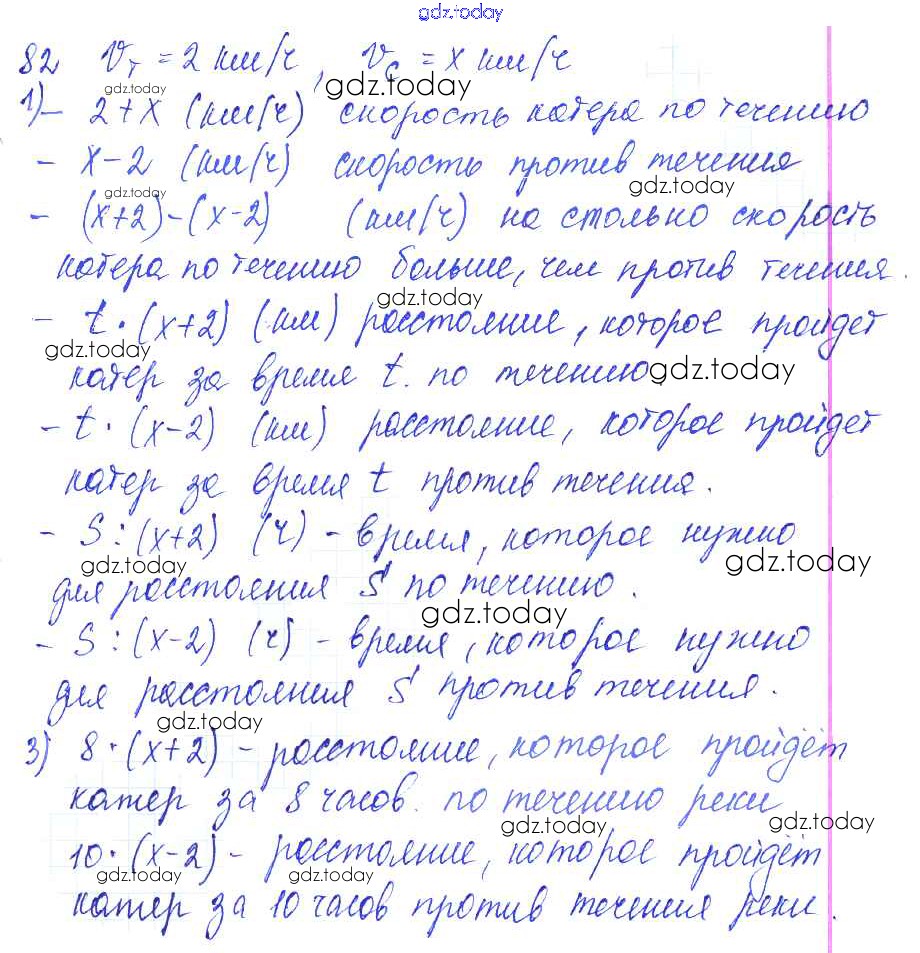 gdz.today
82 vт = 2 км/ч, vс = x км/ч
gdz.today
1) – 2 + x (км/ч) скорость катера по течению
– x – 2 (км/ч) скорость против течения
gdz.today gdz.today
– (x+2) – (x-2) (км/ч) на столько скорость
катера по течению больше, чем против течения.
gdz.today
– t · (x+2) (км) расстояние, которое пройдет
gdz.today gdz.today
катер за время t. по течению.
– t · (x-2) (км) расстояние, которое пройдет
катер за время t против течения.
– S : (x+2) (ч) – время, которое нужно
gdz.today gdz.today
для расстояния S по течению.
gdz.today
– S : (x-2) (ч) – время, которое нужно
для расстояния S против течения.
gdz.today
3) 8 · (x+2) – расстояние, которое пройдёт
катер за 8 часов. по течению реки
gdz.today gdz.today
10 · (x-2) – расстояние, которое пройдёт
gdz.today gdz.today gdz.today
катер за 10 часов против течения реки.